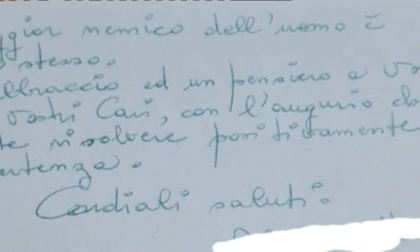 ggior nemico dell'uomo è
stesso.
abbraccio ed un pensiero a Vo
vostri Cari, con l'augurio che
te risolvere positivamente
ertenza.
Cordiali saluti.